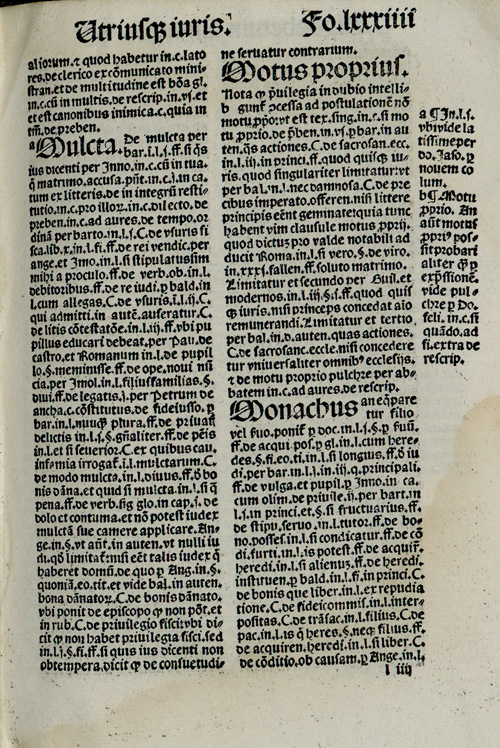 Utriusqꝫ iuris.
Fo.lxxxiiii
aliorum.⁊ quod habetur in.c.lato
res.de clerico excōmunicato mini-
stran.et de multitudine est bōa gl.
in.c.cū in multis.de rescrip.in.vj.et
et est canonibus inimica.c.quia in
tm̄.de preben.
Mulcta. De mulcta per
bar.i.l.j.ff.si qs
ius dicenti per Inno.in.c̄.cū in tua.
q̄ matrimo.accusa.pn̄t.in.c̄.j.in ca.
tum ex litteris.de in integrū resti-
tutio.in.c.pro illor.in.c.dilecto.de
preben.in.c.ad aures.de tempo.or
dinā per barto.in.l.j.C.de vsuris fi
sca.lib.x.in.l.fi.ff.de rei vendic.per
ange.et Imo.in.l.si stipulatus sim
mihi a proculo.ff.de verb.ob.in.l.
debitoribus.ff.de re iudi.p bald.in
l.cum allegas.C.de vsuris.i.l.ij.C.
qui admitti.in autē.auferatur.C.
de litis cōtestatōe.in.l.iij.ff.vbi pu
pillus educari debeat.per Pau.de
castro.et Romanum in.l.de pupil
lo.§.meminisse.ff.de ope.noui nū
cia.per Imol.in.l.filiusfamilias.§.
diui.ff.de legatis.j.per Petrum de
ancha.c.cōstitutus.de fideiusso.p
bar.in.l.nuūqꝫ plura.ff.de priuat̄
delictis in.l.j.§.gn̄aliter.ff.de pēis
in.l.et si seuerior.C.ex quibus cau.
infamia irrogat̄.i.l.mulctarum.C.
de modo mulcta.in.l.diuus.ff.ō bo
nis dāna.et quid si mulcta.in.l.si q̄
pena.ff.de verb.sig glo.in cap.j.de
dolo et contuma.et nō potest iudex
mulctā sue camere applicare.An-
ge.in.§.vt aūt.in auten.vt nulli iu
di.qō limitat̄.nisi eēt talis iudex q̄
haberet domū.de quo p Ang.in.§.
quoniā.eo.tit.et vide bal.in auten.
bona dānator.C.de bonis dānato.
vbi ponit de episcopo qꝫ non pōt.et
in rub.C.de priuilegio fisci:vbi di-
cit qꝫ non habet priuilegia fisci.sed
in.l.j.§.fi.ff.si quis ius dicenti non
obtempera.dicit qꝫ de consuetudi-
ne seruatur contrarium.
Motus proprius.
Nota qꝫ p̄uilegia in dubio intelli-
b gunt̄ p̄cessa ad postulationē nō
motu.pp̄o:vt est tex.sing.in.c.si mo
tu pprio.de p̄ben.in.vj.p bar.in au
ten.q̄s actiones.C.de sacrosan.ecc.
in.l.iij.in princi.ff.quod quisqꝫ iu-
ris.quod singulariter limitatur:vt
per bal.in.l.nec damnosa.C.de pre
cibus imperato.offeren.nisi littere
principis eēnt geminate:quia tunc
habent vim clausule motus pprij.
quod dictū pro valde notabili ad
ducit Roma.in.l.si vero.§.de viro.
in.xxxj.fallen.ff.soluto matrimo.
Limitatur et secundo per Guil.et
modernos.in.l.iij.§.j.ff.quod quis
qꝫ iuris.nisi princeps concedat aīo
remunerandi.Limitatur et tertio
per bal.in.d.auten.quas actiones.
C.de sacrosanc.eccle.nisi concedere
tur vniuersaliter omnibꝰ ecclesijs.
⁊ de motu proprio pulchre per ab-
batem in.c.ad aures.de rescrip.
Monachus an eq̄pare
tur filio
vel suo.ponit̄ p doc.in.l.j.§.p suū.
ff.de acqui pos.p gl.in.l.cum here-
des.§.fi.eo.ti.in.l.si longius.ff.ō iu
di.per bar.in.l.j.in.iij.q.principali.
ff.de vulga.et pupil.p Inno.in ca.
cum olim.de priuile.ij.per bart.in
l.j.in princi.et.§.si fructuarius.ff.
de stipu.seruo.in.l.tutor.ff.de bo-
no.posses.in.l.si condicatur.ff.de cō
di.furti.in.l.is potest.ff.de acquir̄.
heredi.in.l.si alienuz.ff.de heredi.
instituen.p bald.in.l.fi.in princi.C.
de bonis que liber.in.l.ex repudia
tione.C.de fideicommis.in.l.inter-
positas.C.de trāsac.in.l.filius.C.de
pac.in.l.is q̄ heres.§.neqꝫ filius.ff.
de acquiren.heredi.in.l.si liber.C.
de cōditio.ob causam.p Ange.in.l.
l iiij
a
a ¶In.l.j.
vbi vide la
tissime per
do.Jaso.p
nouem co
lum.
b ¶Motu
pprio. An
aūt motus
pprij pos-
sit probari
aliter qꝫ p
exp̄ssionē.
vide pul-
chre p Do.
feli. in.c.si
quādo.ad
fi.extra de
rescrip.